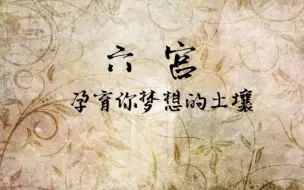 六宫
孕育你梦想的土壤